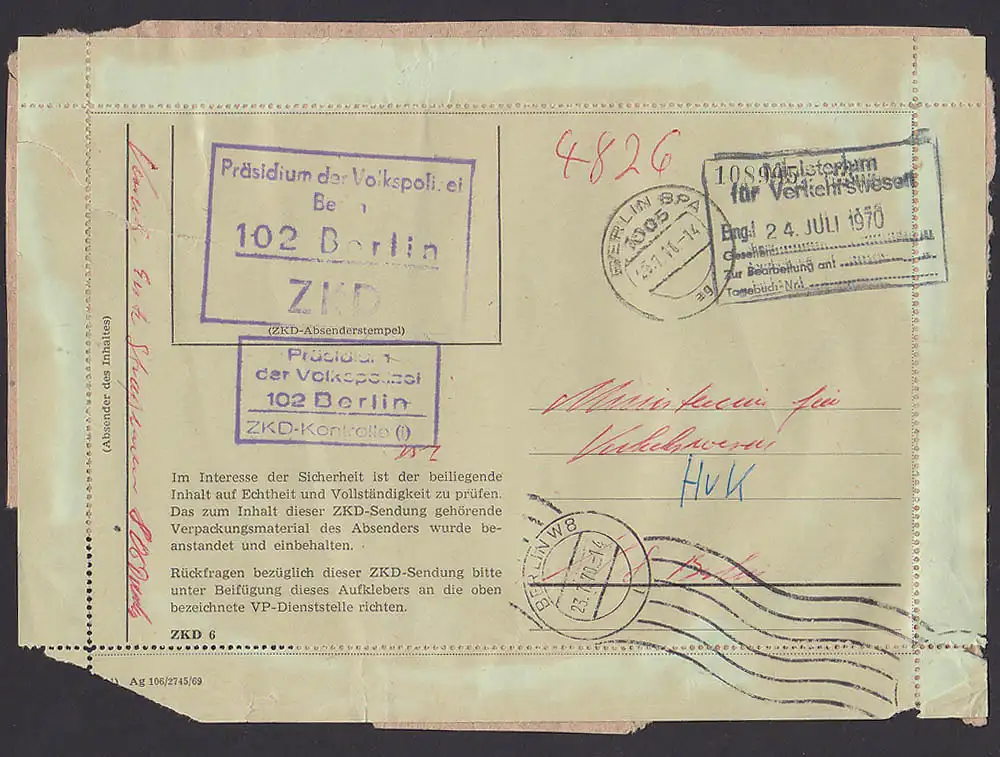 Präsidium der Volkspolizei
Berlin
102 Berlin
ZKD
(ZKD-Absenderstempel)
Präsidium
der Volkspolizei
102 Berlin
ZKD-Kontrolle (i)
(Absender des Inhaltes)
4826
BERLIN BPA
1005
108905
Ministerium
für Verkehrswesen
Eing.: 24. JULI 1970
Gesehen:
Zur Bearbeitung an:
Tagebuch-Nr.
Ministerium für
Verkehrswesen
HvK
Berlin
BERLIN W8
23.7.70.-14
Im Interesse der Sicherheit ist der beiliegende
Inhalt auf Echtheit und Vollständigkeit zu prüfen.
Das zum Inhalt dieser ZKD-Sendung gehörende
Verpackungsmaterial des Absenders wurde be-
anstandet und einbehalten.
Rückfragen bezüglich dieser ZKD-Sendung bitte
unter Beifügung dieses Aufklebers an die oben
bezeichnete VP-Dienststelle richten.
ZKD 6
Ag 106/2745/69